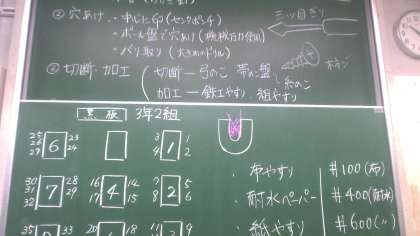 ② 穴あけ・・中心に印(センタポンチ)
・ボール盤で穴あけ(機械万力使用)
・バリ取り(大きめのドリル)
三ツ目ぎり
② 切断・加工 (切断―弓のこ 帯のこ盤 糸のこ
加工―鉄工やすり 組やすり
木ネジ
黒板 3年2組
25 26 27 6 23 24
3 4 1 1 2
30 31 32 7 28 29
16 17 4 14 15
7 8 2 5 6
・布やすり #100(布)
・耐水ペーパー #400(耐水)
・紙やすり #600(〃)